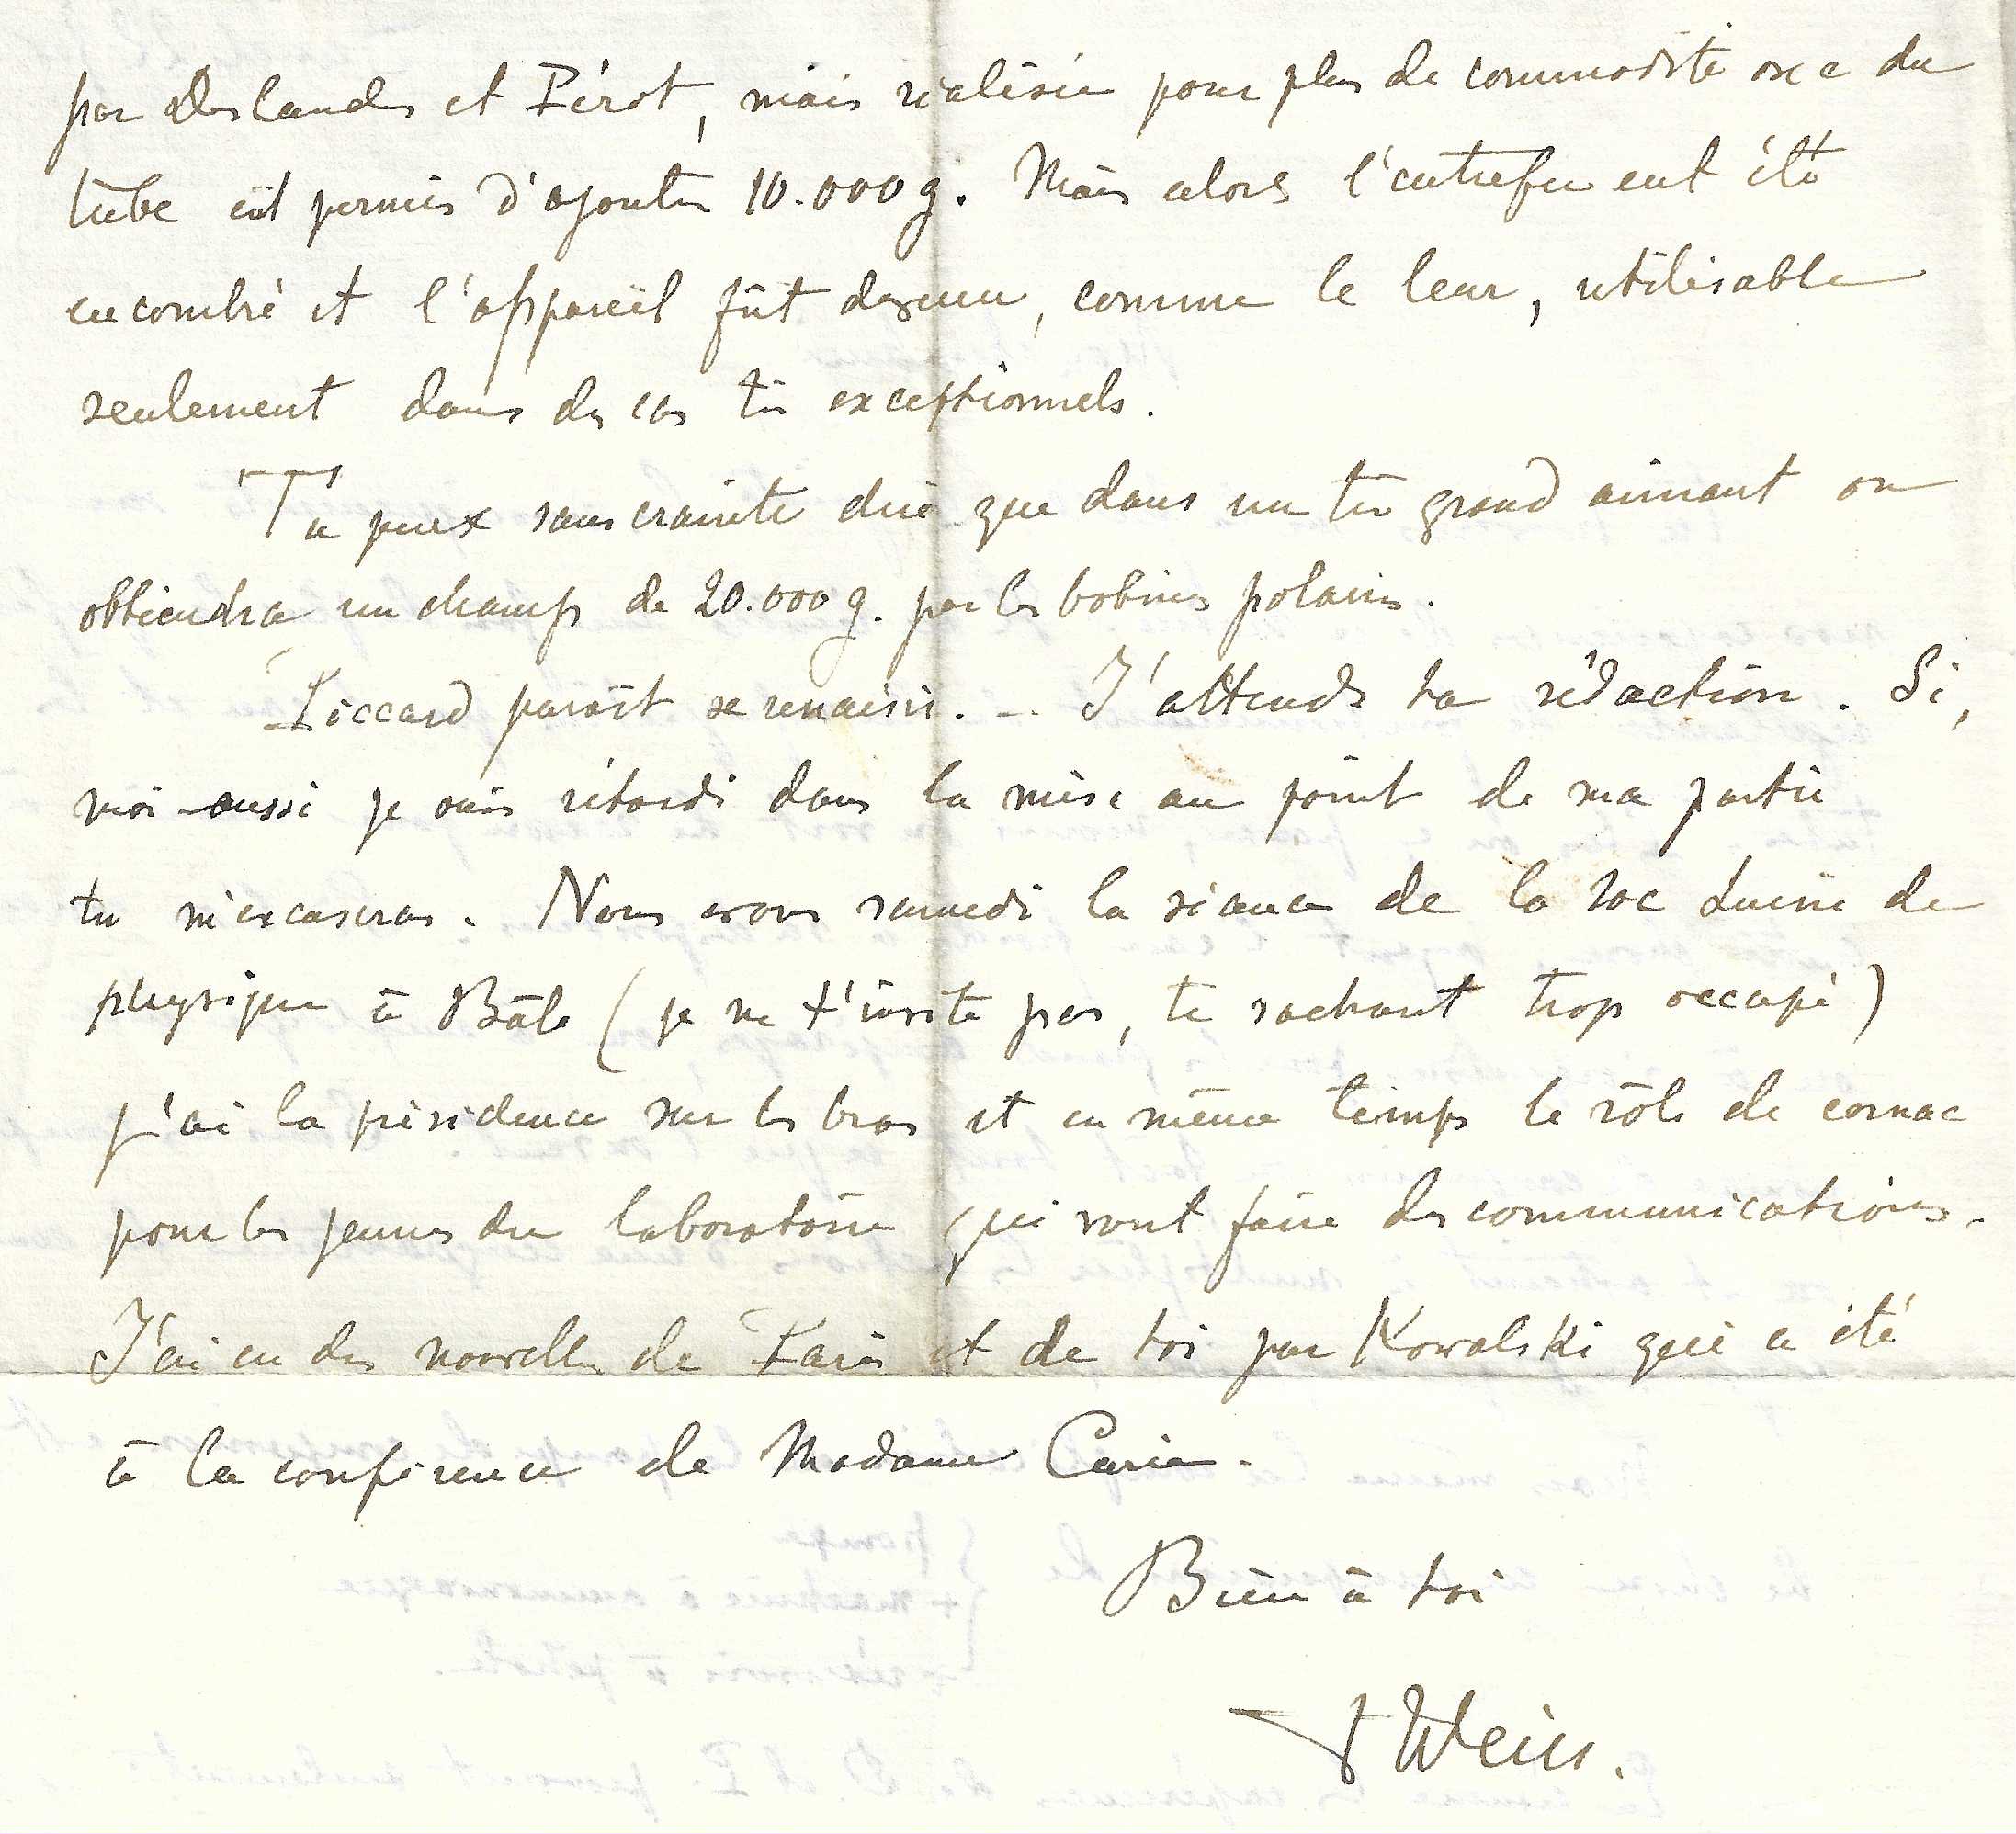 par Deslandes et Pérot, mais réalisée pour plus de commodité avec du
tube eût permis d'ajouter 10.000 g. Mais alors l'entrefer eut été
encombré et l'appareil fût devenu, comme le leur, utilisable
seulement dans des cas très exceptionnels.
Tu peux sans crainte dire que dans un très grand aimant on
obtiendra un champ de 20.000 g. par les bobines polaires.
Piccard paraît se ressaisir. — J'attends ta rédaction. Si,
moi aussi je suis retardé dans la mise au point de ma partie
tu m'excuseras. Nous avons samedi la séance de la Soc Suisse de
physique à Bâle (je ne t'invite pas, te sachant trop occupé)
j'ai la présidence sur les bras et en même temps le rôle de cornac
pour les jeunes du laboratoire qui vont faire des communications.
J'ai eu des nouvelles de Paris et de toi par Kowalski qui a été
à la conférence de Madame Curie.
Bien à toi
P Weiss.